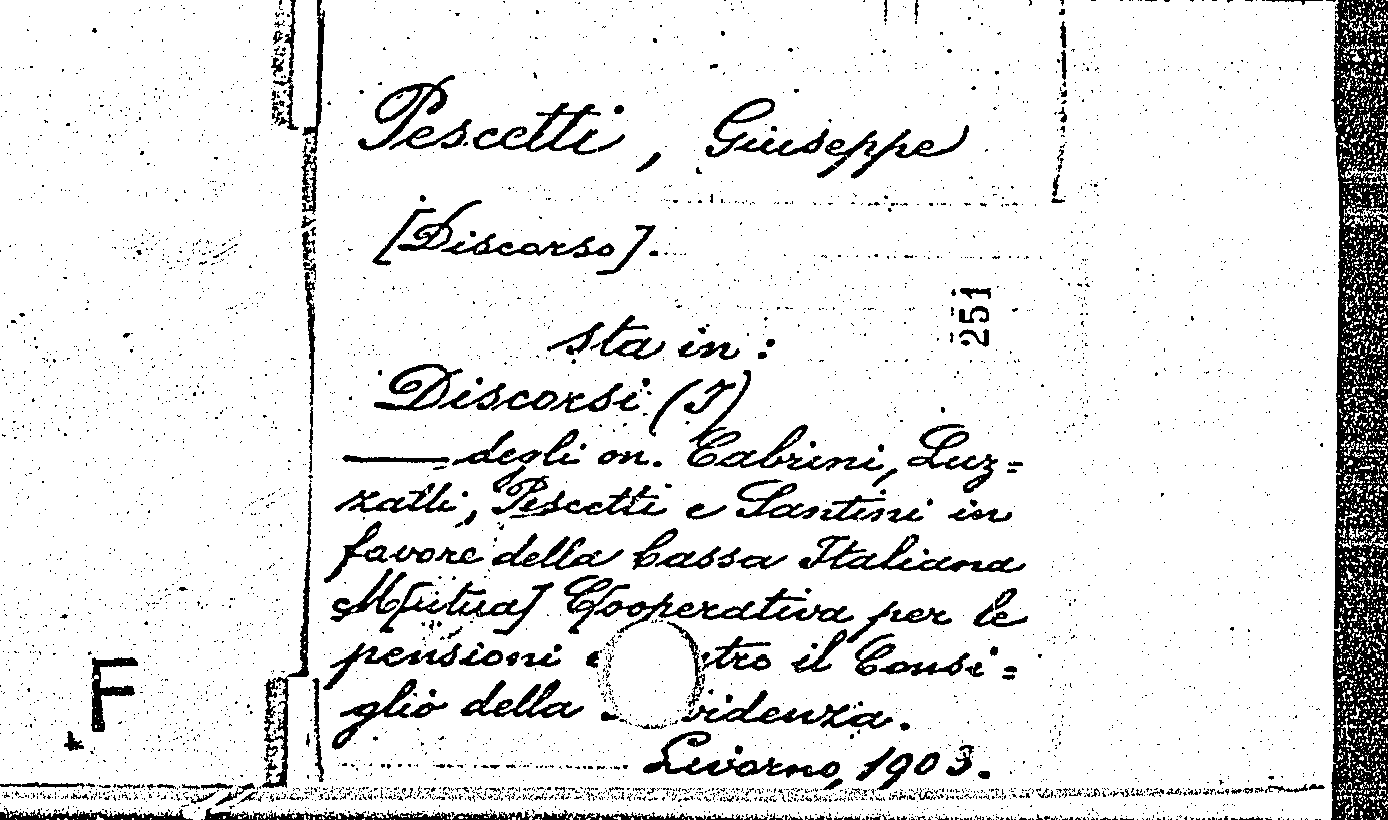 Pescetti, Giuseppe
[Discorso].
251
sta in:
Discorsi (I)
—— degli on. Cabrini, Luz=
zatti, Pescetti e Santini in
favore della Cassa Italiana
M[utua] Cooperativa per le
pensioni il Consi=
glio della
Livorno, 1903.
F